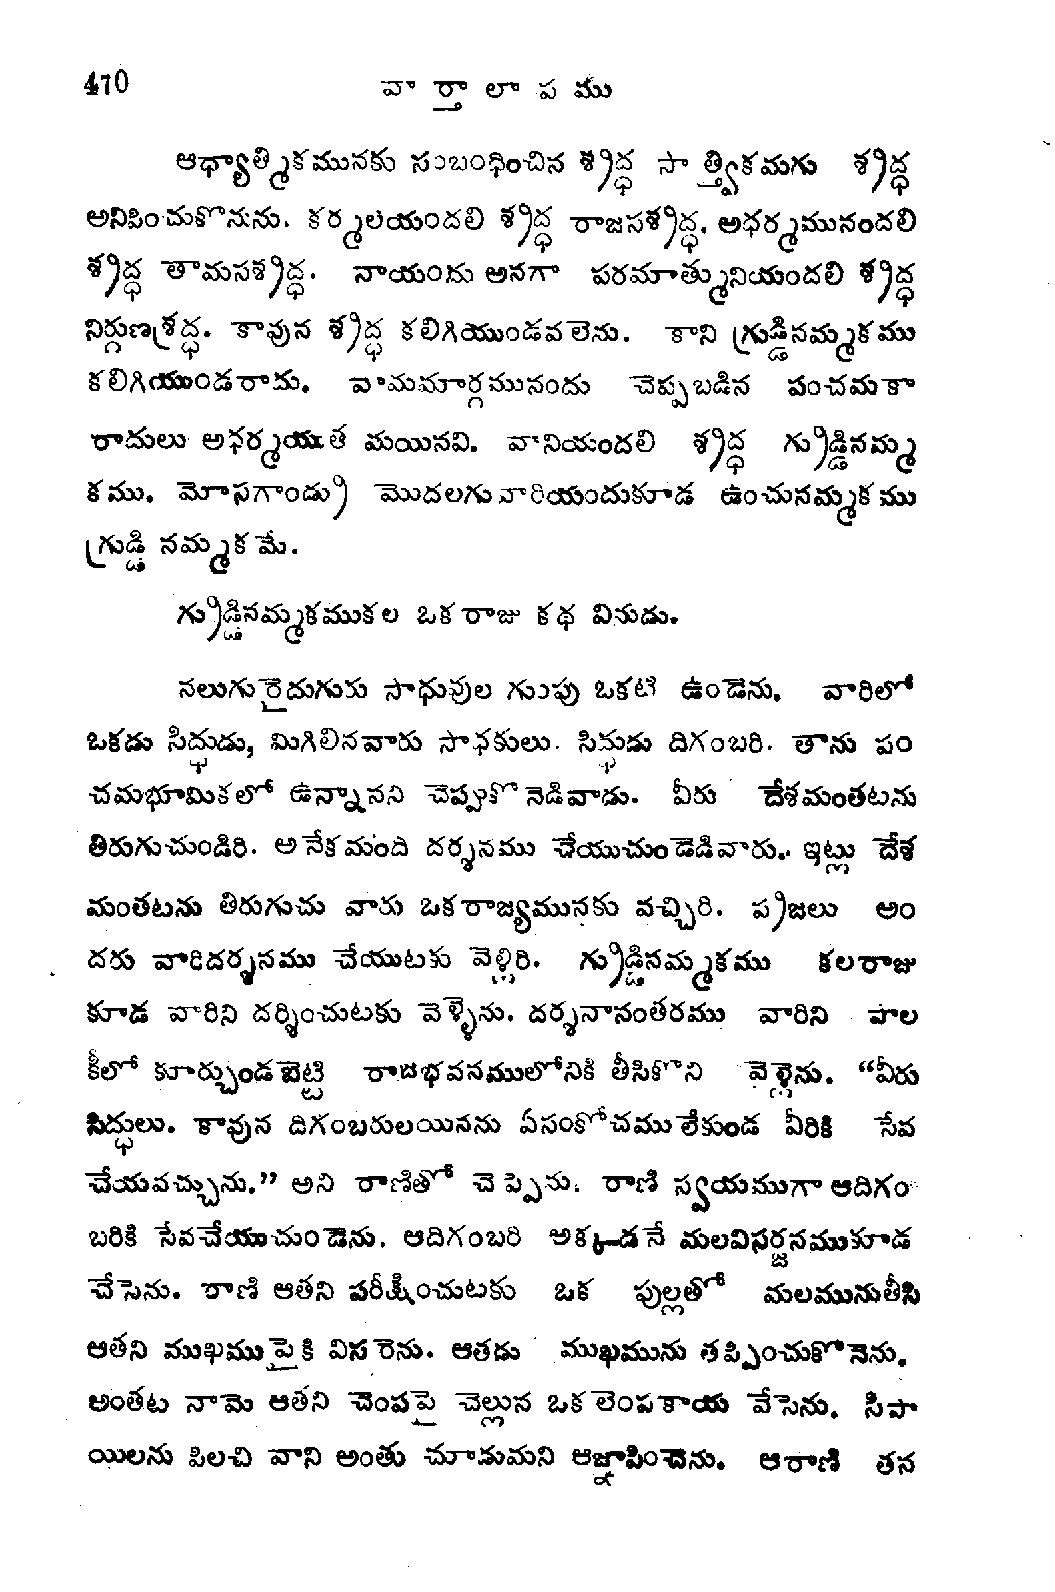 470 వార్తాలాపము
ఆధ్యాత్మికమునకు సంబంధించిన శ్రద్ధ సాత్త్వికమగు శ్రద్ధ
అనిపించుకొనును. కర్మలయందలి శ్రద్ధ రాజసశ్రద్ధ. అధర్మమునందలి
శ్రద్ధ తామసశ్రద్ధ. నాయందు అనగా పరమాత్మునియందలి శ్రద్ధ
నిర్గుణశ్రద్ధ. కావున శ్రద్ధ కలిగియుండవలెను. కాని గ్రుడ్డినమ్మకము
కలిగియుండరాదు. వామమార్గమునందు చెప్పబడిన పంచమకా
రాదులు అధర్మయుత మయినవి. వానియందలి శ్రద్ధ గ్రుడ్డినమ్మ
కము. మోసగాండ్రు మొదలగువారియందుకూడ ఉంచునమ్మకము
గ్రుడ్డి నమ్మకమే.
గ్రుడ్డినమ్మకముకల ఒకరాజు కథ వినుడు.
నలుగురైదుగురు సాధువుల గుంపు ఒకటి ఉండెను. వారిలో
ఒకడు సిద్ధుడు, మిగిలినవారు సాధకులు. సిద్ధుడు దిగంబరి. తాను పం
చమభూమికలో ఉన్నానని చెప్పుకొనెడివాడు. వీరు దేశమంతటను
తిరుగుచుండిరి. అనేకమంది దర్శనము చేయుచుండెడివారు. ఇట్లు దేశ
మంతటను తిరుగుచు వారు ఒకరాజ్యమునకు వచ్చిరి. ప్రజలు అం
దరు వారిదర్శనము చేయుటకు వెళ్లిరి. గ్రుడ్డినమ్మకము కలరాజు
కూడ వారిని దర్శించుటకు వెళ్ళెను. దర్శనానంతరము వారిని పాల
కీలో కూర్చుండబెట్టి రాజభవనములోనికి తీసికొని వెళ్లెను. “వీరు
సిద్ధులు. కావున దిగంబరులయినను ఏసంకోచములేకుండ వీరికి సేవ
చేయవచ్చును.” అని రాణితో చెప్పెను. రాణి స్వయముగా ఆదిగం
బరికి సేవచేయుచుండెను. ఆదిగంబరి అక్కడనే మలవిసర్జనముకూడ
చేసెను. రాణి ఆతని పరీక్షించుటకు ఒక పుల్లతో మలమునుతీసి
ఆతని ముఖముపైకి విసరెను. ఆతడు ముఖమును తప్పించుకొనెను.
అంతట నామె ఆతని చెంపపై చెల్లున ఒకలెంపకాయ వేసెను. సిపా
యిలను పిలచి వాని అంతు చూడుమని ఆజ్ఞాపించెను. ఆరాణి తన